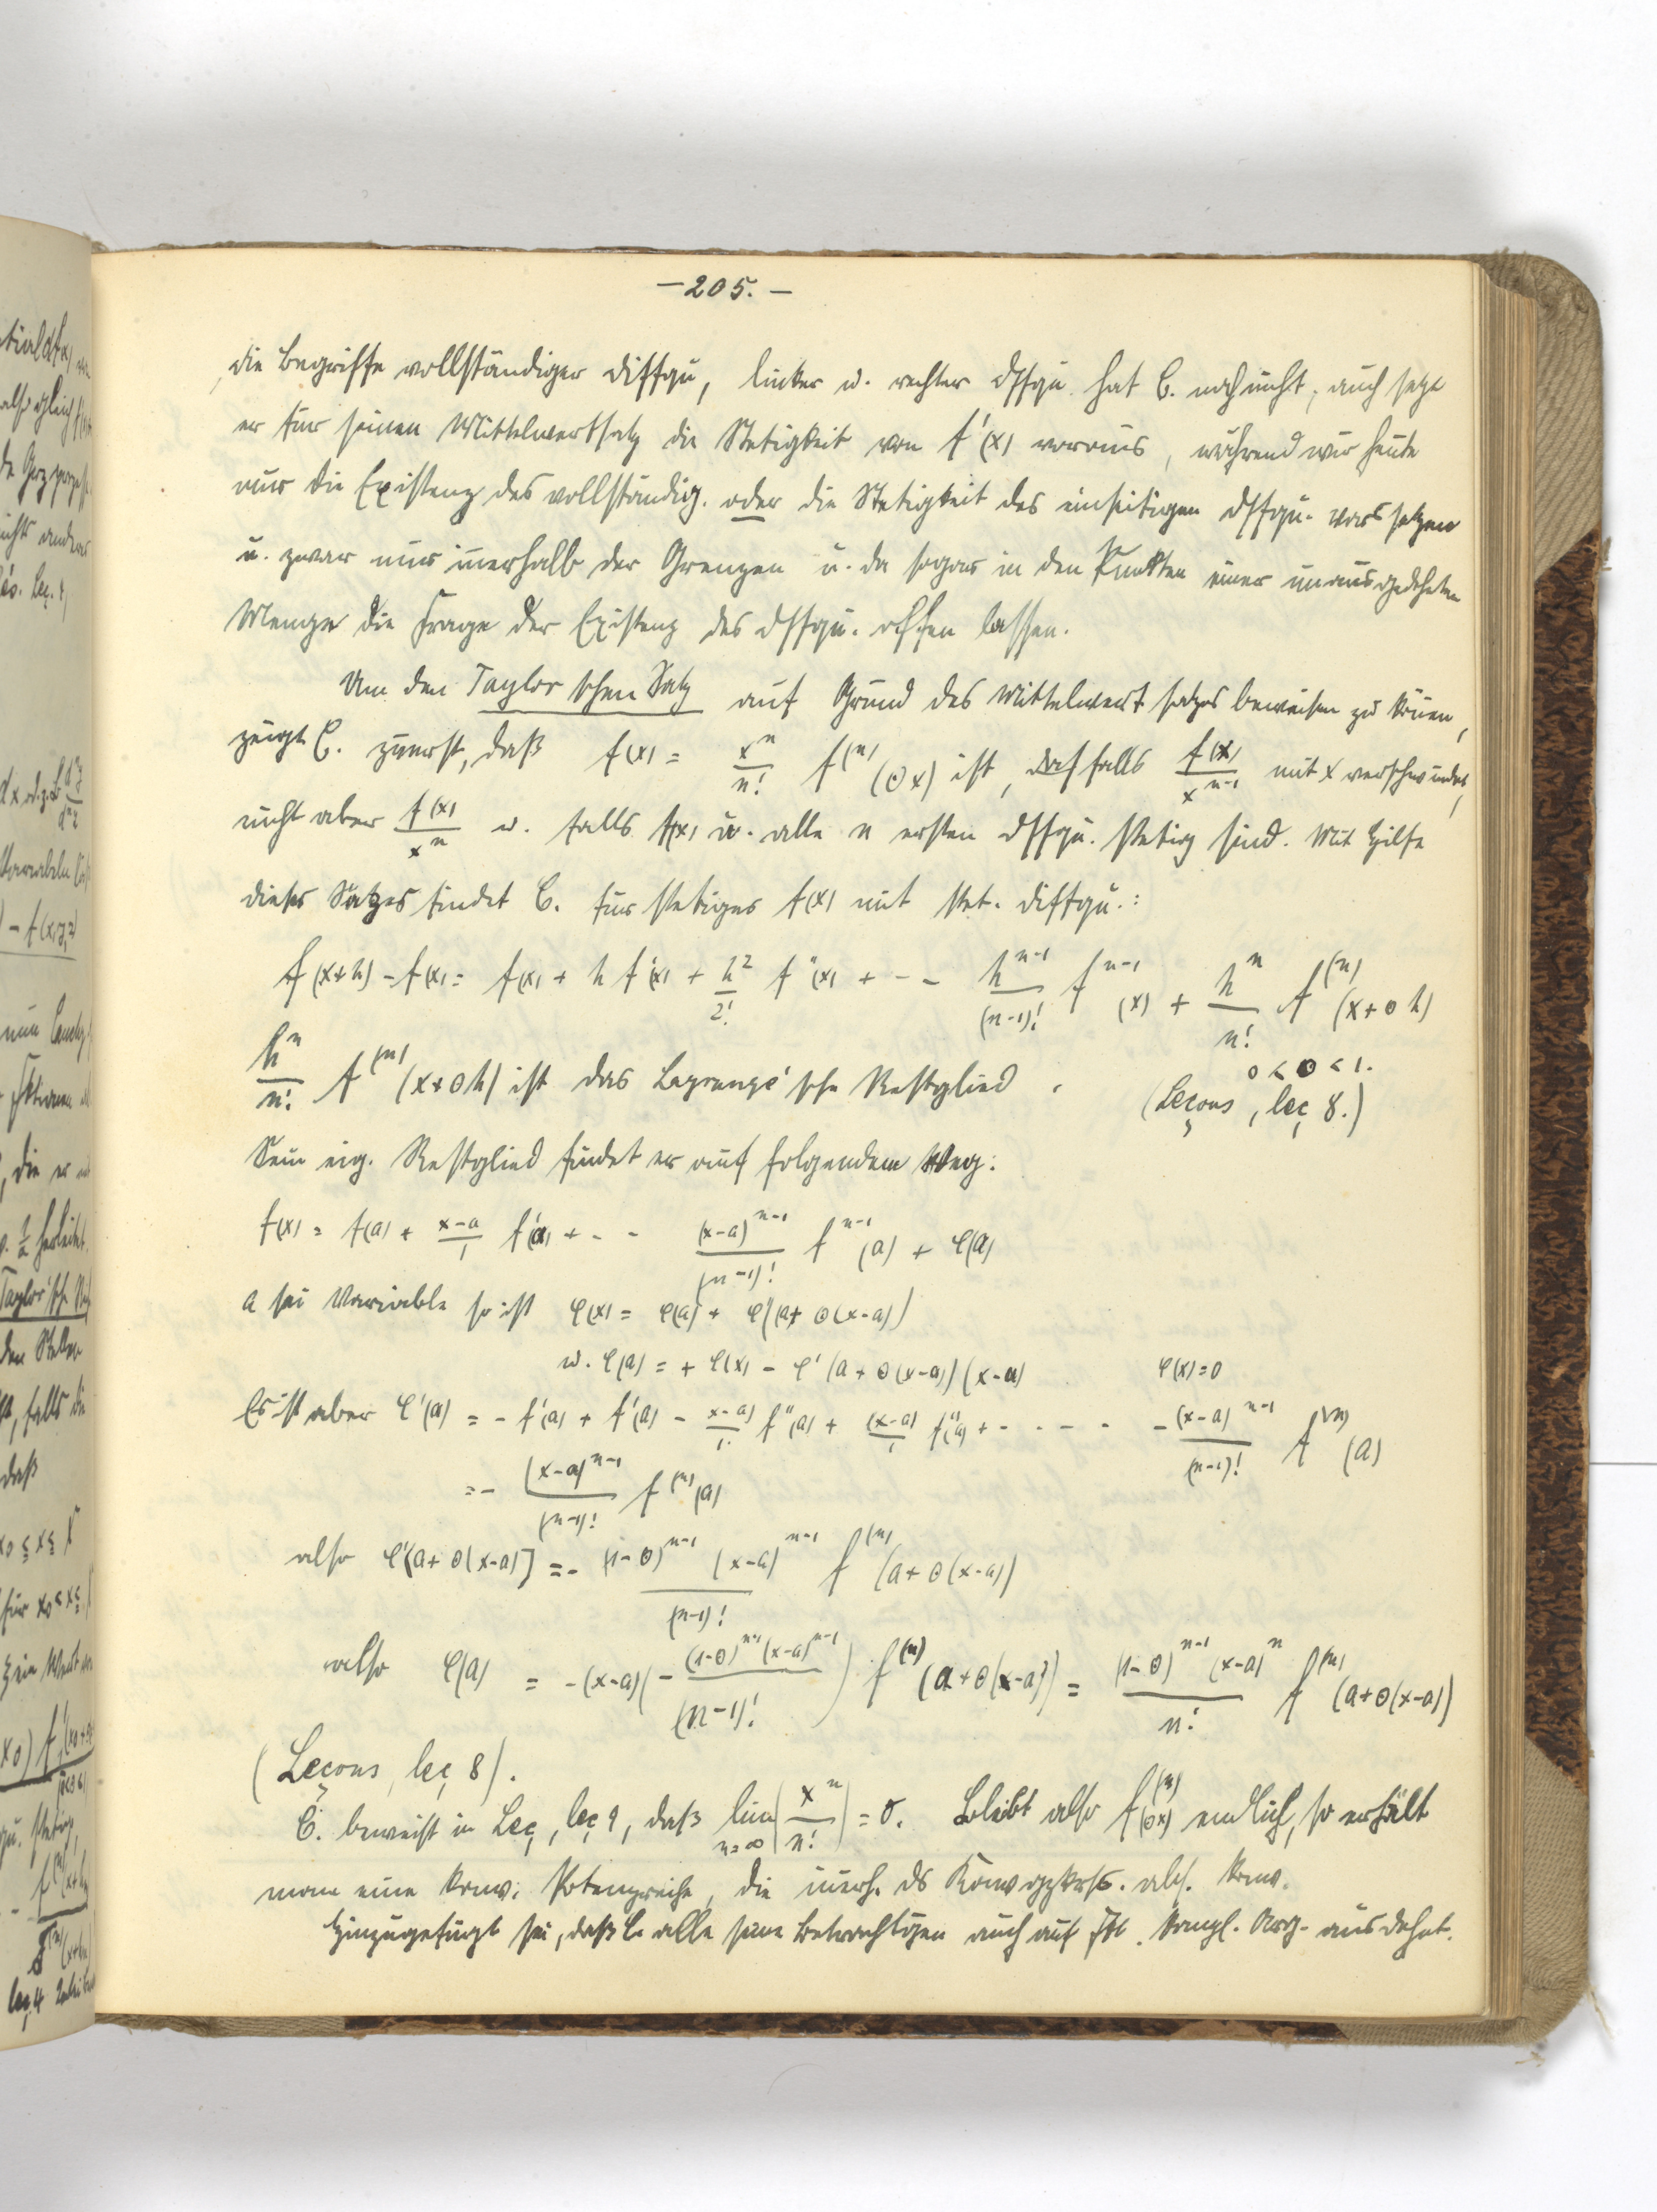 – 205. –
die Begriffe vollständiger Diffqu, linker u. rechter Dffqu. hat C. noch nicht, auch setzt
er für seinen Mittelwertsatz die Stetigkeit von f'(x) voraus, während wir heute
nur die Existenz des vollständig. oder die Stetigkeit des einseitigen Dffqu. voraussetzen
u. zwar nur innerhalb der Grenzen u. da sogar in den Punkten einer unausgedehnten
Menge die Frage der Existenz des Dffqu. offen lassen.
Um den Taylor'schen Satz auf Grund des Mittelwertsatzes beweisen zu können,
zeigt C. zuerst, daß f(x) = x^n/n! f^(n)(Θx) ist, falls f(x)/x^{n-1} mit x verschwindet,
nicht aber f(x)/x^n u. falls f(x) u. alle n ersten Dffqu. stetig sind. Mit Hilfe
dieses Satzes findet C. für stetiges f(x) mit stet. Diffqu.:
f(x+h) = f(x) = f(x) + h f'(x) + h²/2! f''(x) + - - h^{n-1}/(n-1)! f^{n-1}(x) + h^n/n! f^(n)(x+Θh)
0 < Θ < 1.
h^n/n! f^(n)(x+Θh) ist das Lagrange'sche Restglied. (Leçons, leç 8.)
Sein eig. Restglied findet er auf folgendem Weg:
f(x) = f(a) + (x-a)/1 f'(a) + - - (x-a)^{n-1}/(n-1)! f^{n-1}(a) + φ(a)
a sei Variable so ist φ(x) = φ(a) + φ'(a+Θ(x-a))
u. φ(a) = + φ(x) - φ'(a+Θ(x-a))(x-a) φ(x)=0
Es ist aber φ'(a) = - f'(a) + f'(a) - (x-a)/1! f''(a) + (x-a)/1 f''(a) + - - - - -(x-a)^{n-1}/(n-1)! f^(n)(a)
= - (x-a)^{n-1}/(n-1)! f^(n)(a)
also φ'[a+Θ(x-a)] = - (1-Θ)^{n-1} (x-a)^{n-1}/(n-1)! f^(n)(a+Θ(x-a))
also φ(a) = -(x-a)(- (1-Θ)^{n-1}(x-a)^{n-1}/(n-1)!) f^(n)(a+Θ(x-a)) = (1-Θ)^{n-1}(x-a)^n/n! f^(n)(a+Θ(x-a))
(Leçons, leç 8).
C. beweist in Leç, leç 9, daß lim n=∞ (x^n/n!) = 0. Bleibt also f^(n)(Θx) endlich, so erhält
man eine konv. Potenzreihe, die innerh. ds Konvgzkrs. abs. konv.
Hinzugefügt sei, daß C. alle seine Betrachtgen auch auf Fkt. kompl. Arg. ausdehnt.